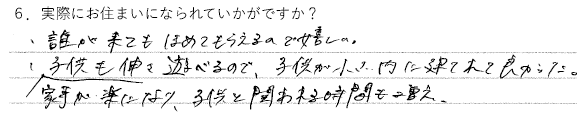 6. 実際にお住まいになられていかがですか？
、誰が来てもほめてもらえるので嬉しい。
、子供も伸々遊べるので、子供が小さい内に建てれて良かった。
家事が楽になり、子供と関われる時間も増え。